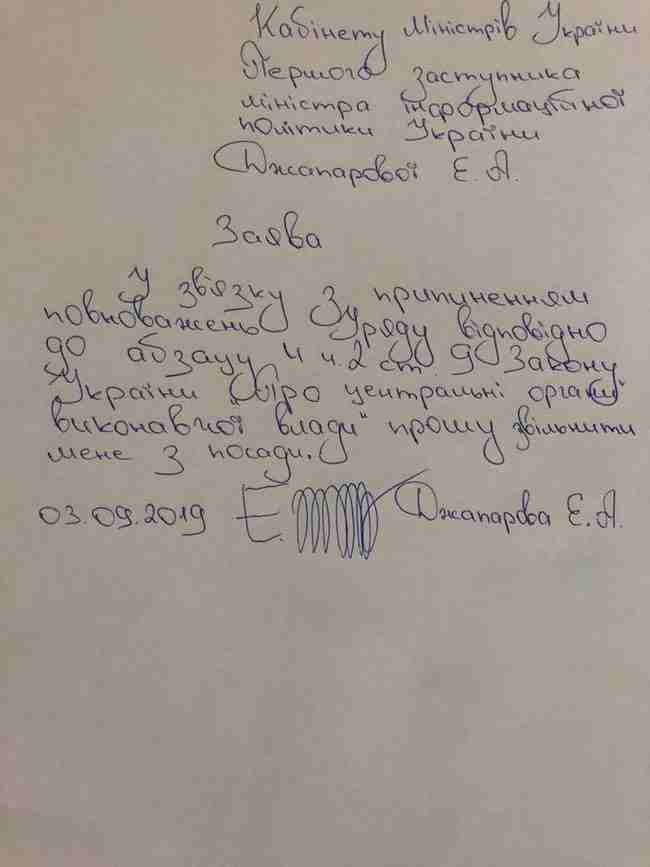 Кабінету Міністрів України
Першого заступника
міністра інформаційної
політики України
Джапарової Е. А.
Заява
У зв'язку з припиненням
повноважень Уряду відповідно
до абзацу 4 ч. 2 ст. 9 Закону
України „Про центральні органи
виконавчої влади" прошу звільнити
мене з посади.
03.09.2019 Е. Джапарова Е. А.